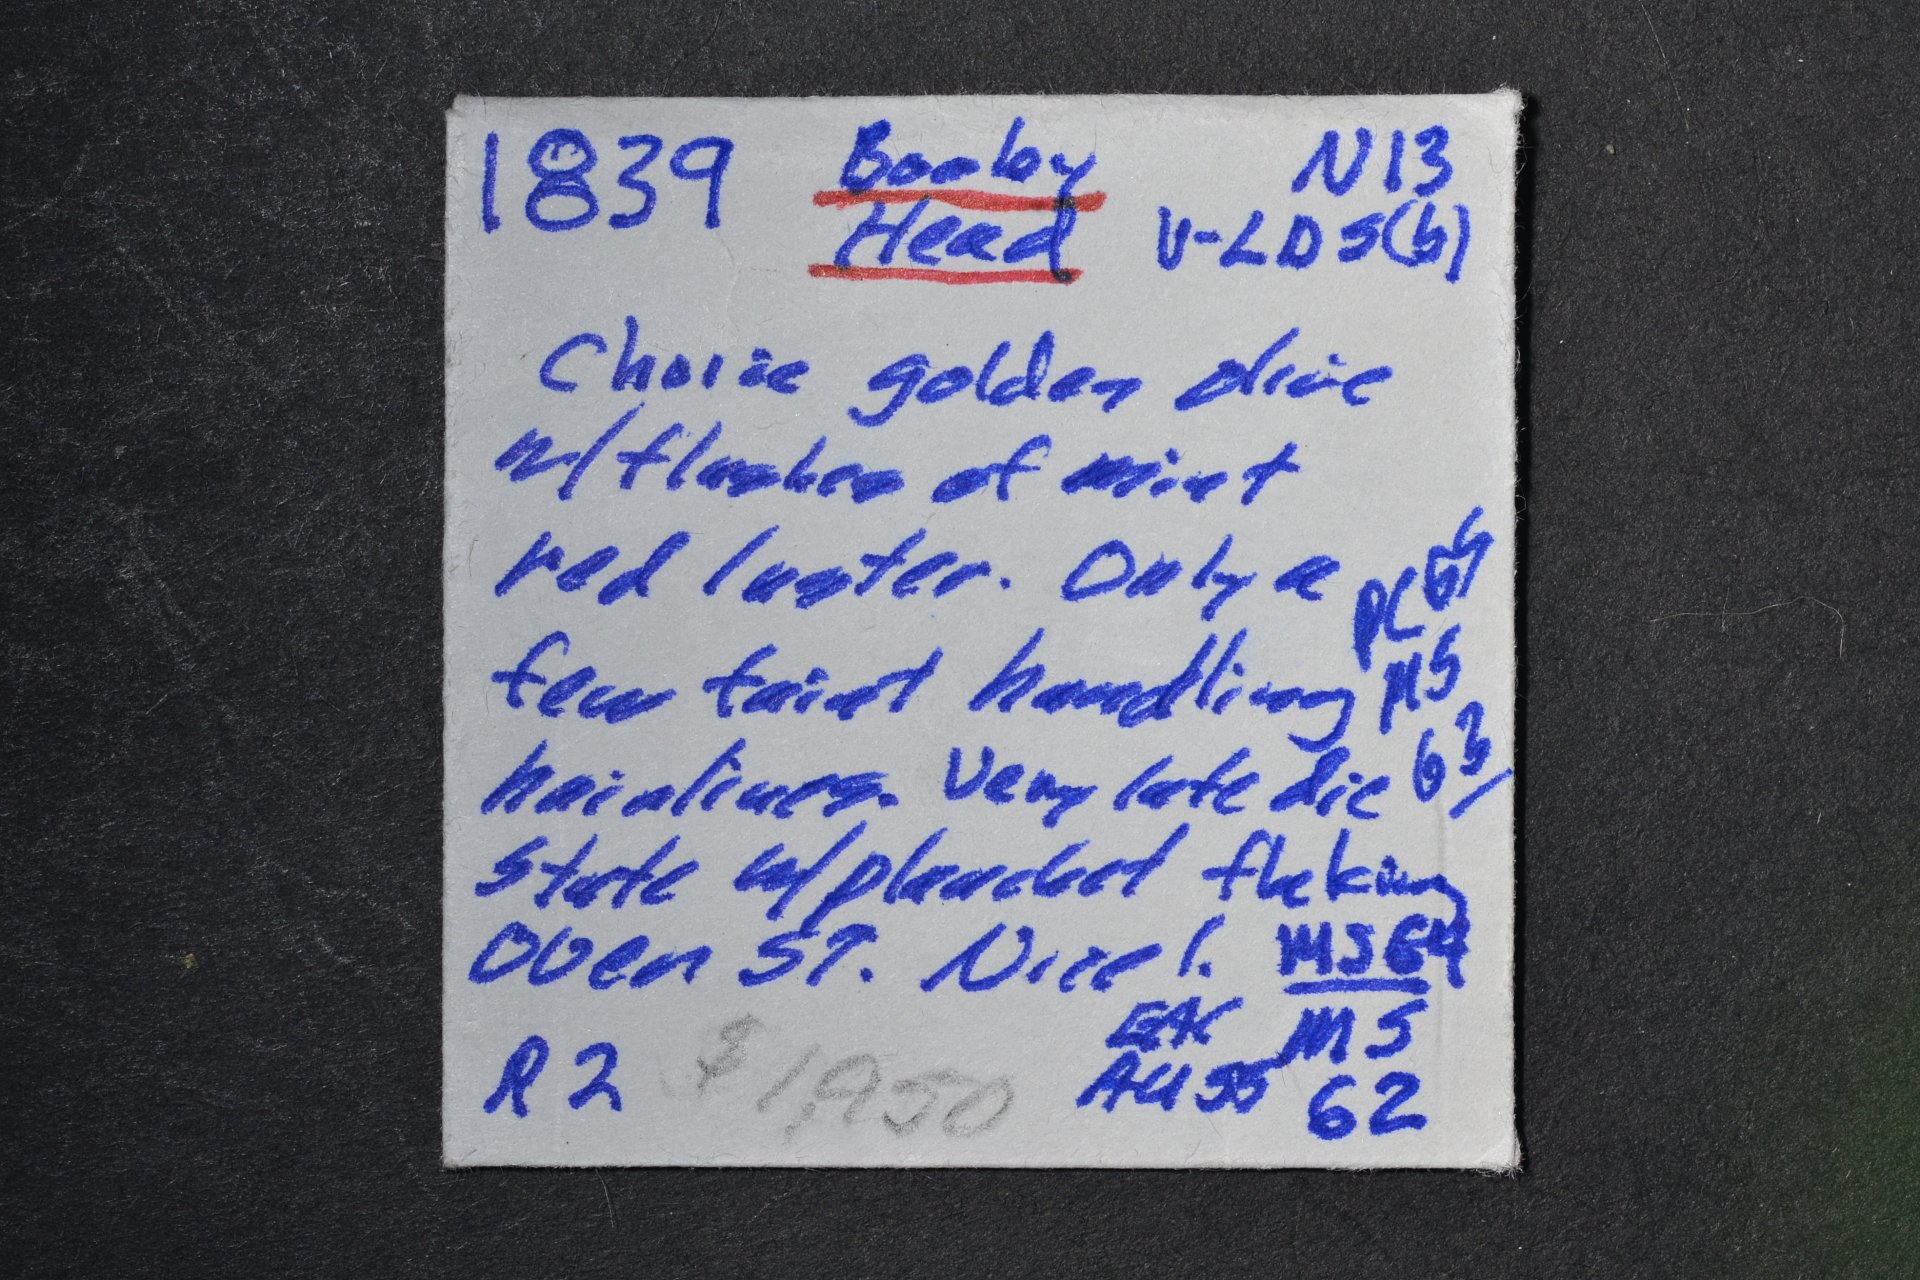 1839 Booby N13
Head V-LDS(b)
Choice golden olive
w/flashes of mint
red luster. Only a
few faint handling
hairlines. Very late die
state w/planchet flaking
Over ST. Nice!. MS64
PC65
MS
63
EAC MS
AU55 62
R2 $1,950